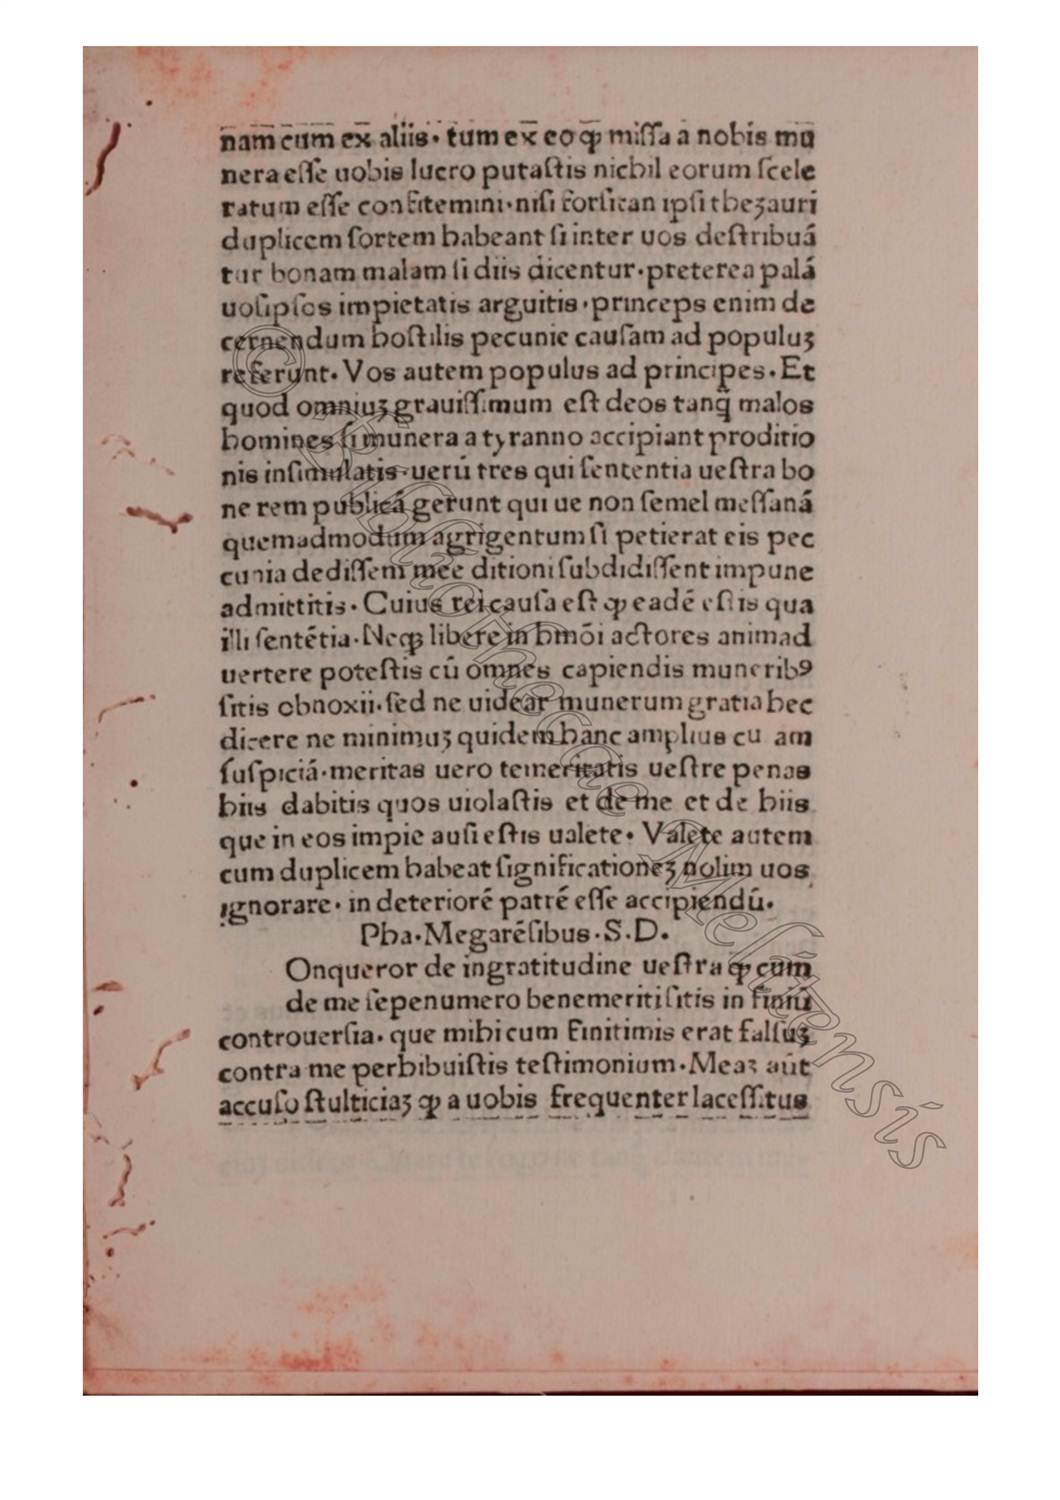 nam cum ex aliis· tum ex eo ꝙ miſſa a nobis mu
nera eſſe uobis lucro putaſtis nichil eorum ſcele
ratum eſſe confitemini·niſi forſitan ipſi theʒauri
duplicem ſortem habeant ſi inter uos deſtribuā
tur bonam malam ſi diis dicentur·preterea palā
uoſipſos impietatis arguitis·princeps enim de
cernendum hoſtilis pecunie cauſam ad populuʒ
referunt· Vos autem populus ad principes· Et
quod omniuʒ grauiſſimum eſt deos tanq̄ malos
homines ſi munera a tyranno accipiant proditio
nis inſimulatis·uerū tres qui ſententia ueſtra bo
ne rem publicā gerunt qui ue non ſemel meſſanā
quemadmodum agrigentum ſi petierat eis pec
cunia dediſſem mee ditioni ſubdidiſſent impune
admittitis· Cuius rei cauſa eſt ꝙ eadē eſtis qua
illi ſentētia·Neqꝫ libere in hmōi actores animad
uertere poteſtis cū omnes capiendis munerib9
ſitis obnoxii·ſed ne uidear munerum gratia hec
dicere ne minimuʒ quidem hanc amplius cu am
ſuſpiciā·meritas uero temeritatis ueſtre penas
hiis dabitis quos uiolaſtis et de me et de hiis
que in eos impie auſi eſtis ualete· Valete autem
cum duplicem habeat ſignificationeʒ nolim uos
ignorare· in deteriorē patrē eſſe accipiendū·
Pha·Megarēſibus·S·D·
Onqueror de ingratitudine ueſtra ꝙ cum
de me ſepenumero benemeriti ſitis in finiū
controuerſia· que mihi cum finitimis erat falſuʒ
contra me perhibuiſtis teſtimonium·Meaʒ aūt
accuſo ſtulticiaʒ ꝙ a uobis frequenter laceſſitus
© Bibliothecae Melitensis